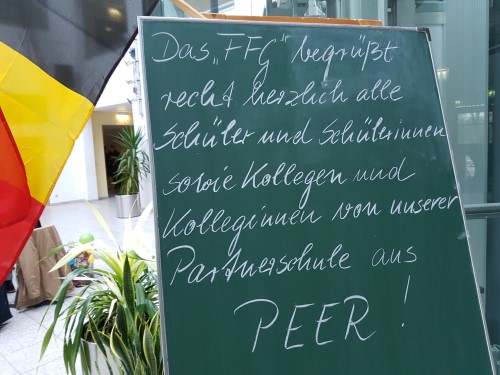 Das „FFG" begrüßt
recht herzlich alle
Schüler und Schülerinnen
sowie Kollegen und
Kolleginnen von unserer
Partnerschule aus
PEER!